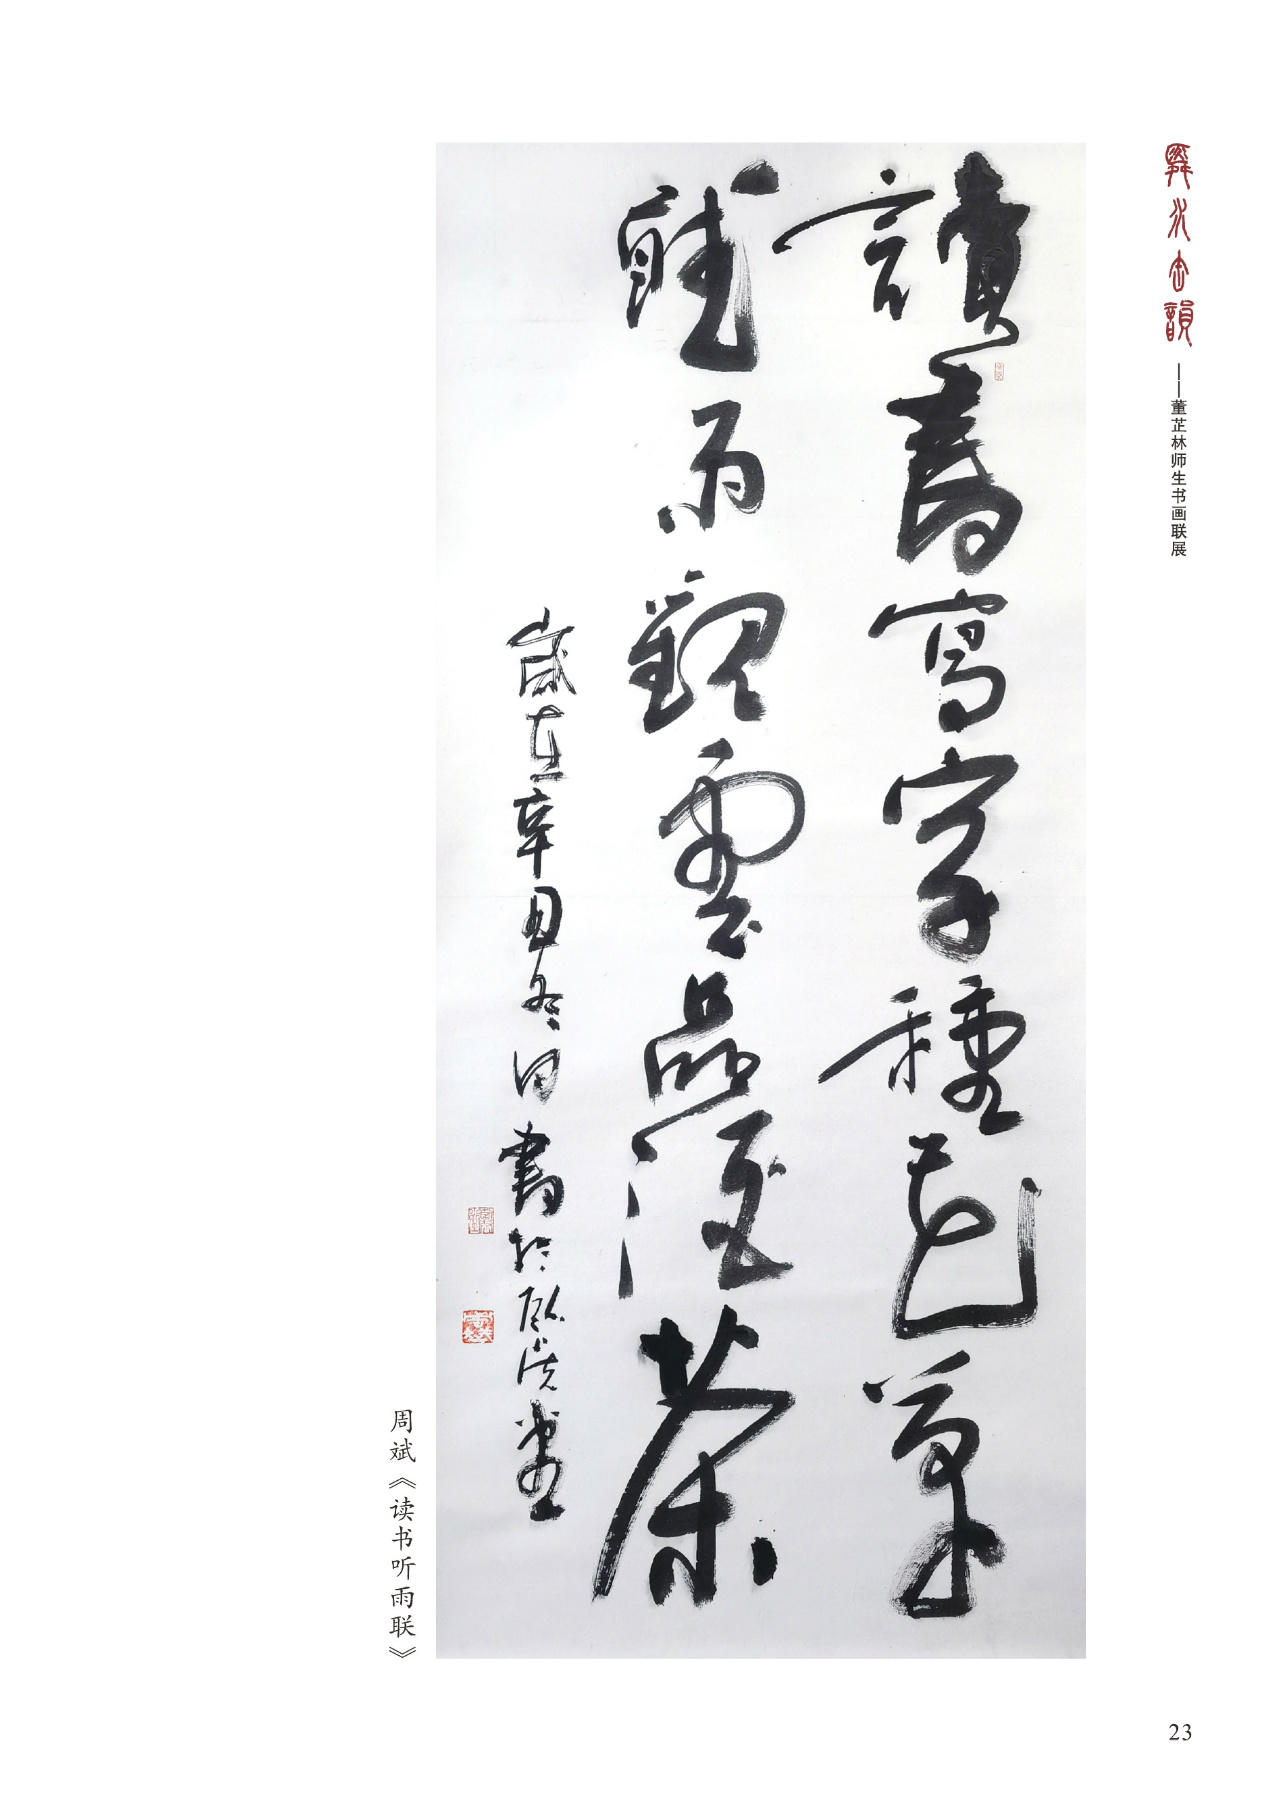 ——董芷林师生书画联展
讀書寫字種花草
聽雨觀雲品酒茶
歲在辛丑冬日書於臥堂
周斌《读书听雨联》
23